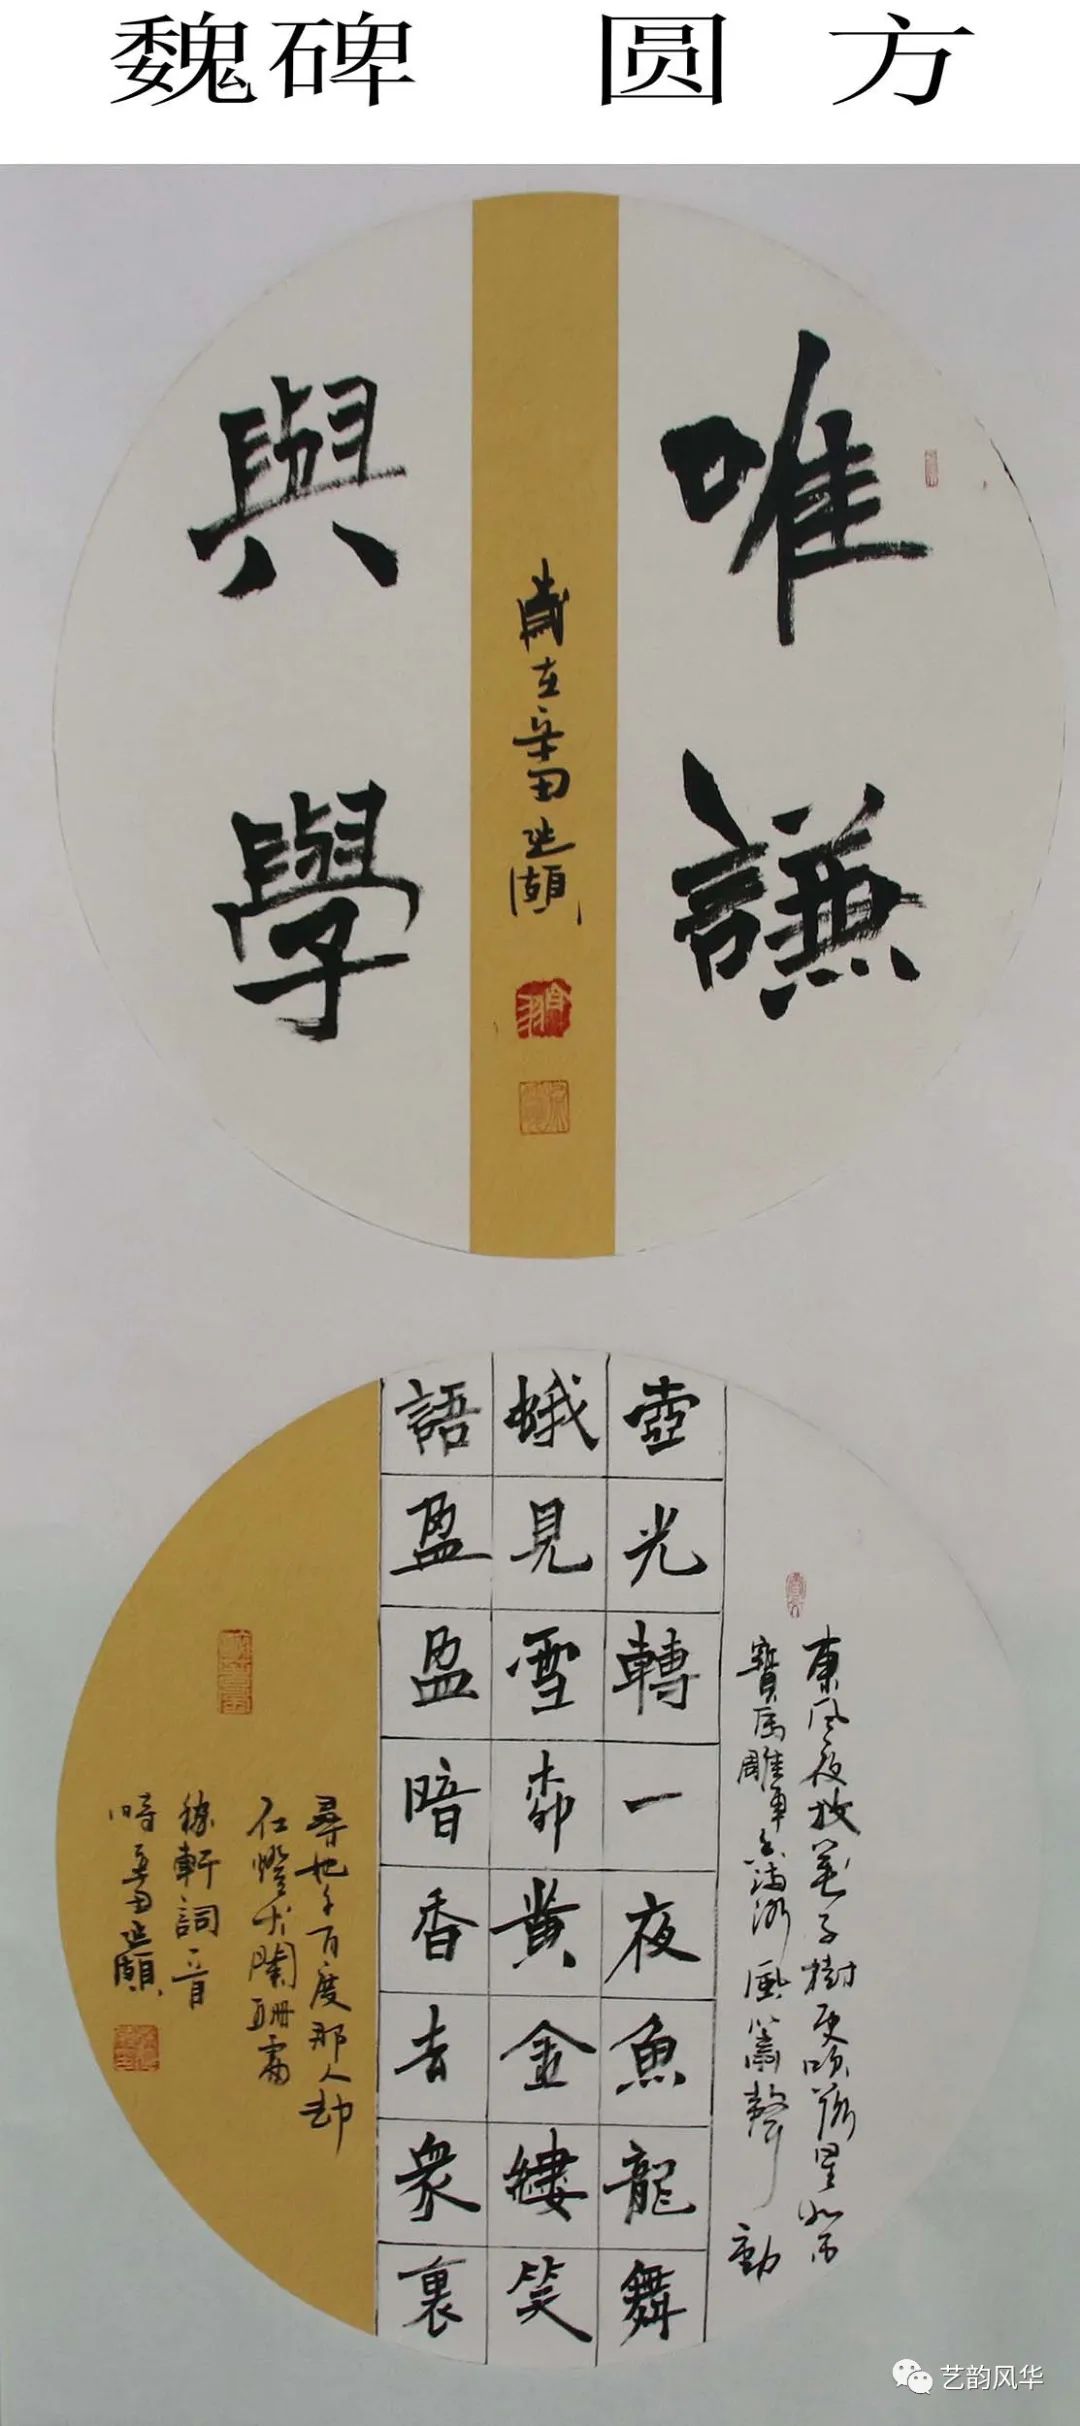 魏碑 圆 方
唯謙
與學
歲在辛丑
東風夜放花千樹更吹落星如雨
寶馬雕車香滿路風簫聲動
壺光轉一夜魚龍舞
蛾兒雪柳黃金縷笑
語盈盈暗香去眾裏
尋他千百度那人却
在燈火闌珊處
稼軒詞一首
時辛丑
艺韵风华